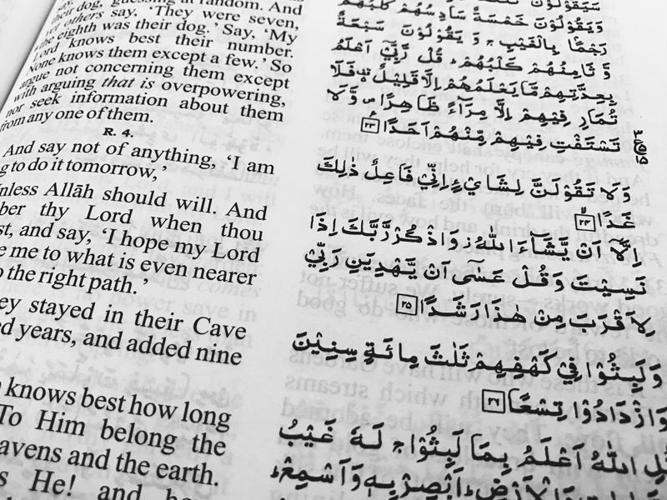 dog, guessing at random. And
others say, ‘They were seven,
eighth was their dog.’ Say, ‘My
Lord knows best their number.
None knows them except a few.’ So
argue not concerning them except
with arguing that is overpowering,
nor seek information about them
from any one of them.
R. 4.
And say not of anything, ‘I am
to do it tomorrow,’
Allāh should will. And
thy Lord when thou
and say, ‘I hope my Lord
me to what is even nearer
the right path.’
stayed in their Cave
years, and added nine
knows best how long
To Him belong the
and the earth.
He! and
وَيَقُوْلُوْنَ خَمْسَةٌ سَادِسُهُمْ كَلْبُهُمْ
رَجْمًۢا بِالْغَيْبِ ۚ وَيَقُوْلُوْنَ سَبْعَةٌ
وَّ ثَامِنُهُمْ كَلْبُهُمْ ؕ قُلْ رَّبِّيْۤ اَعْلَمُ
بِعِدَّتِهِمْ مَّا يَعْلَمُهُمْ اِلَّا قَلِيْلٌ ۬ فَلَا
تُمَارِ فِيْهِمْ اِلَّا مِرَآءً ظَاهِرًا ۪ وَّ لَا
تَسْتَفْتِ فِيْهِمْ مِّنْهُمْ اَحَدًا ٢٣
وَلَا تَقُوْلَنَّ لِشَايْءٍ اِنِّيْ فَاعِلٌ ذٰلِكَ
غَدًا ٢٤
اِلَّاۤ اَنْ يَّشَآءَ اللّٰهُ ؗ وَاذْكُرْ رَّبَّكَ اِذَا
نَسِيْتَ وَقُلْ عَسٰۤى اَنْ يَّهْدِيَنِ رَبِّيْ
لِاَقْرَبَ مِنْ هٰذَا رَشَدًا ٢٥
وَلَبِثُوْا فِيْ كَهْفِهِمْ ثَلٰثَ مِائَةٍ سِنِيْنَ
وَازْدَادُوْا تِسْعًا ٢٦
قُلِ اللّٰهُ اَعْلَمُ بِمَا لَبِثُوْا ۚ لَهٗ غَيْبُ
وَالْاَرْضِ ؕ اَبْصِرْ بِهٖ وَاَسْمِعْ ؕ